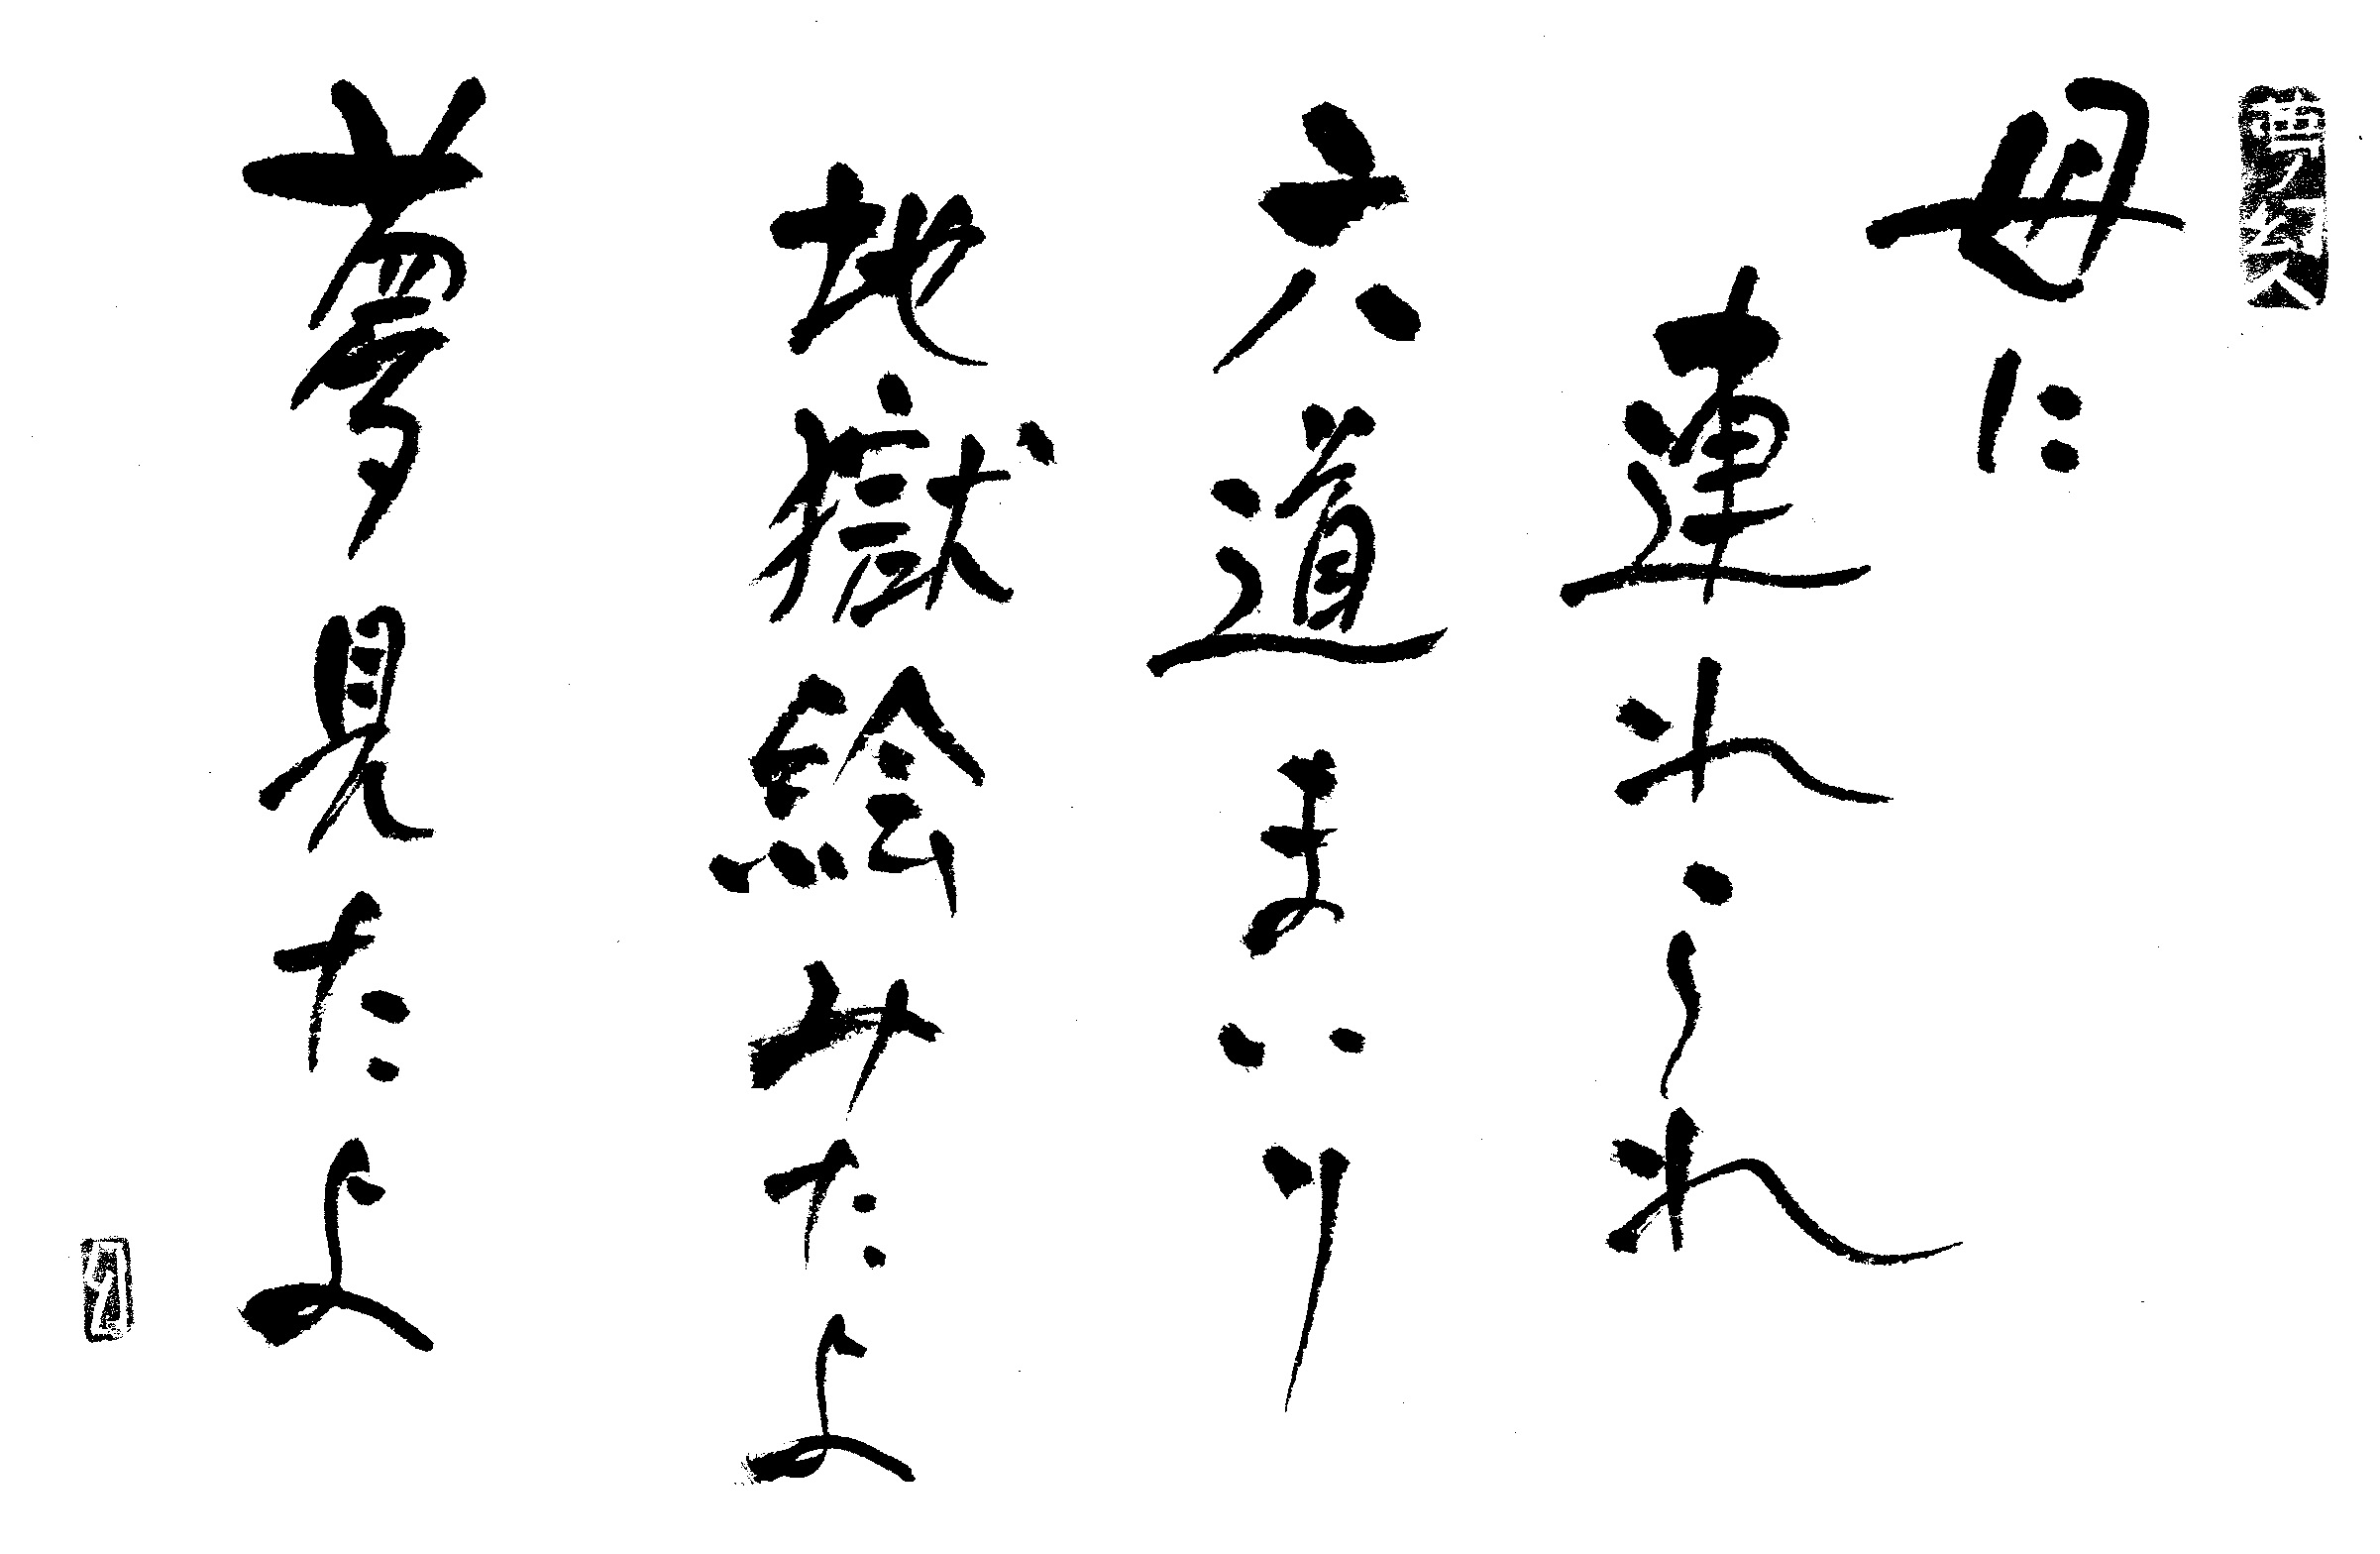 母に
連れられ
六道まいり
地獄絵みたよ
夢見たよ